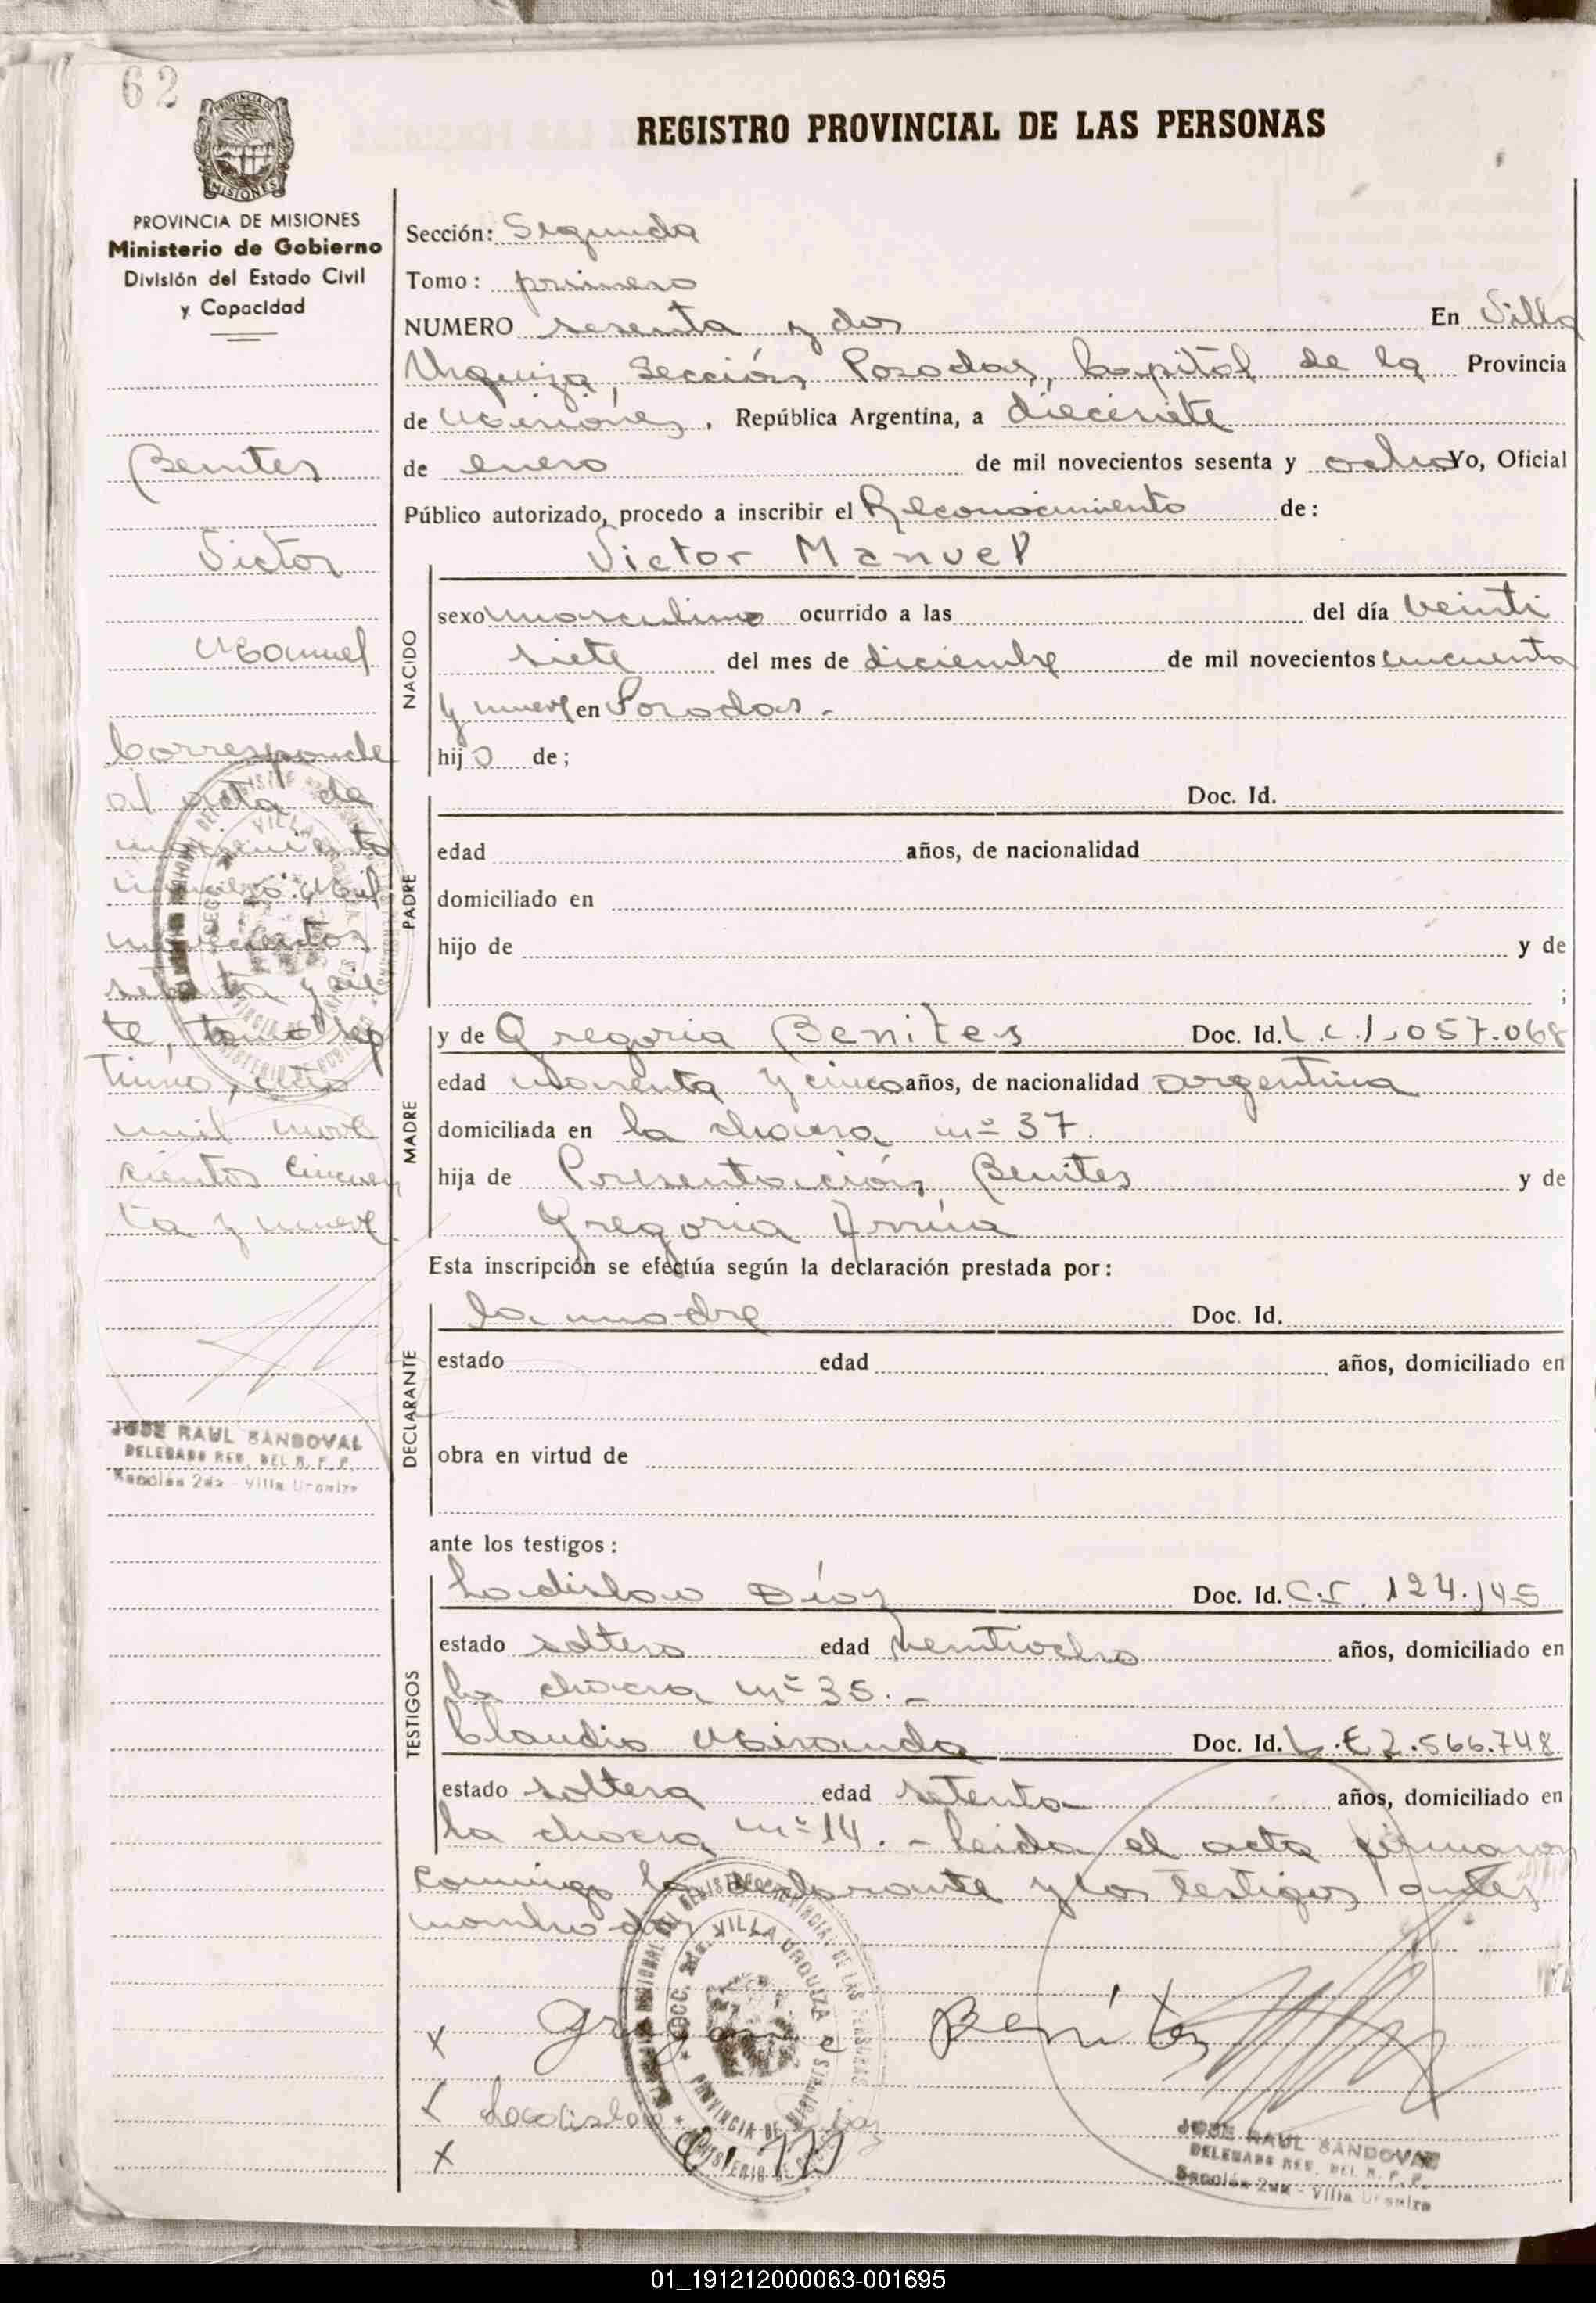 62
PROVINCIA DE MISIONES
Ministerio de Gobierno
División del Estado Civil
y Capacidad
REGISTRO PROVINCIAL DE LAS PERSONAS
Sección: Segunda
Tomo: primero
NUMERO sesenta y dos En Villa
Urquiza, Sección Posadas, Capital de la Provincia
de Misiones, República Argentina, a diecisiete
de enero de mil novecientos sesenta y ocho Yo, Oficial
Público autorizado, procedo a inscribir el Reconocimiento de:
Victor Manuel
NACIDO
sexo masculino ocurrido a las del día veinti
siete del mes de diciembre de mil novecientos cincuenta
y nueve en Posadas.-
hijo de;
PADRE
Doc. Id.
edad años, de nacionalidad
domiciliado en
hijo de y de
;
MADRE
y de Gregoria Benites Doc. Id. L.C.1.057.068
edad cuarenta y cinco años, de nacionalidad argentina
domiciliada en la chacra nº 37.
hija de Presentación Benites y de
Gregoria Arrúa
Esta inscripción se efectúa según la declaración prestada por:
DECLARANTE
la madre Doc. Id.
estado edad años, domiciliado en
obra en virtud de
ante los testigos:
TESTIGOS
Ladislao Díaz Doc. Id. C.I. 124.145
estado soltero edad veintiocho años, domiciliado en
la chacra nº 35.-
Claudia Miranda Doc. Id. L.E 2.566.748
estado soltera edad setenta años, domiciliado en
la chacra nº 14.- Leida el acta firmaron
conmigo la declarante y los testigos antes
nombrados
Benites
Victor
Manuel
Corresponde
al acta de
nacimiento
número: Mil
novecientos
setenta y sie
te, tomo sép
timo, año
mil nove
cientos cincuen
ta y nueve
JOSE RAUL SANDOVAL
DELEGADO REG. DEL R. P. P.
Sección 2da - Villa Urquiza
x Gregoria Benitez
x Ladislao Diaz
x C M
SECC. 2da. VILLA URQUIZA
PROVINCIA DE MISIONES
JOSE RAUL SANDOVAL
DELEGADO REG. DEL R. P. P.
Sección 2da - Villa Urquiza
01_191212000063-001695